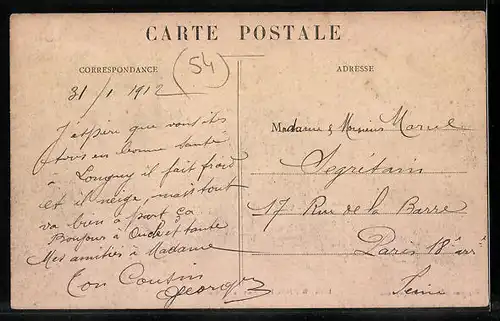 CARTE POSTALE
CORRESPONDANCE
54
ADRESSE
31/1 1912
J'espère que vous êtes
tous en bonne santé
à Longwy il fait froid
et il neige, mais tout
va bien à part ça
Bonjour à Oncle et tante
Mes amitiés à Madame
Ton Cousin
Georges
Madame & Monsieur Marcel
Segrétain
17 Rue de la Barre
Paris 18e arr
Seine